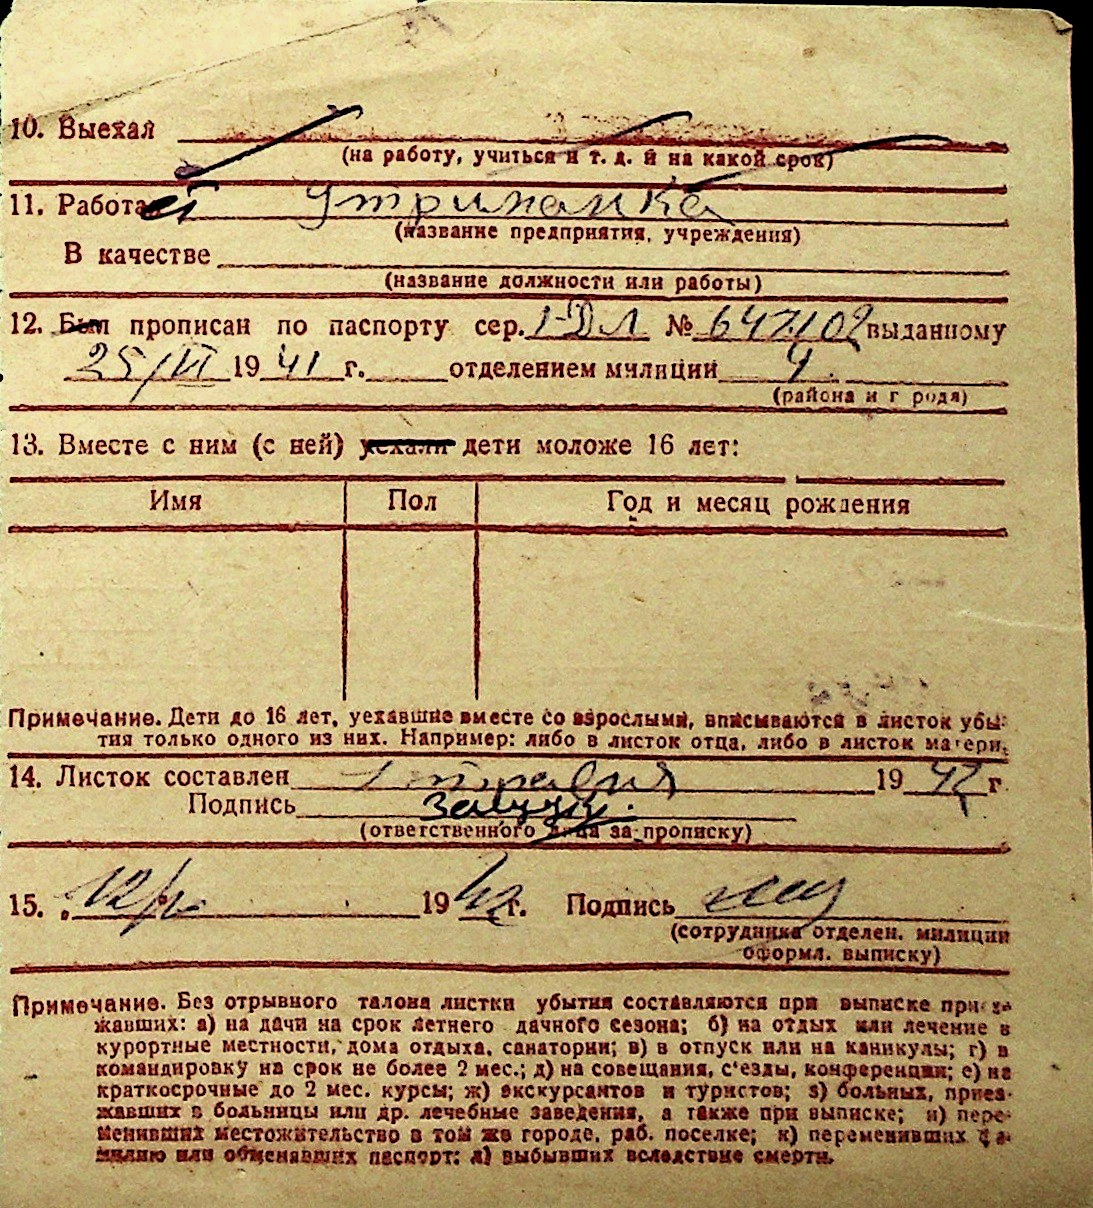 10. Выехал
(на работу, учиться и т. д. и на какой срок)
11. Работает
(название предприятия, учреждения)
В качестве
(название должности или работы)
12. Был прописан по паспорту сер. 1-ДЛ № 647102 выданному
25/VI 1941 г. отделением милиции 4
(района и г родя)
13. Вместе с ним (с ней) уехали дети моложе 16 лет:
Имя Пол Год и месяц рождения
Примечание. Дети до 16 лет, уехавшие вместе со взрослыми, вписываются в листок убы-
тия только одного из них. Например: либо в листок отца, либо в листок матери.
14. Листок составлен 1 1942 г.
Подпись
(ответственного лица за прописку)
15. 1942 г. Подпись
(сотрудника отделен. милиции
оформл. выписку)
Примечание. Без отрывного талона листки убытия составляются при выписке приез-
жавших: а) на дачи на срок летнего дачного сезона; б) на отдых или лечение в
курортные местности, дома отдыха, санатории; в) в отпуск или на каникулы; г) в
командировку на срок не более 2 мес.; д) на совещания, с'езды, конференции; е) на
краткосрочные до 2 мес. курсы; ж) экскурсантов и туристов; з) больных, приез-
жавших в больницы или др. лечебные заведения, а также при выписке; и) пере-
менивших местожительство в том же городе, раб. поселке; к) переменивших фа-
милию или обменявших паспорт; л) выбывших вследствие смерти.